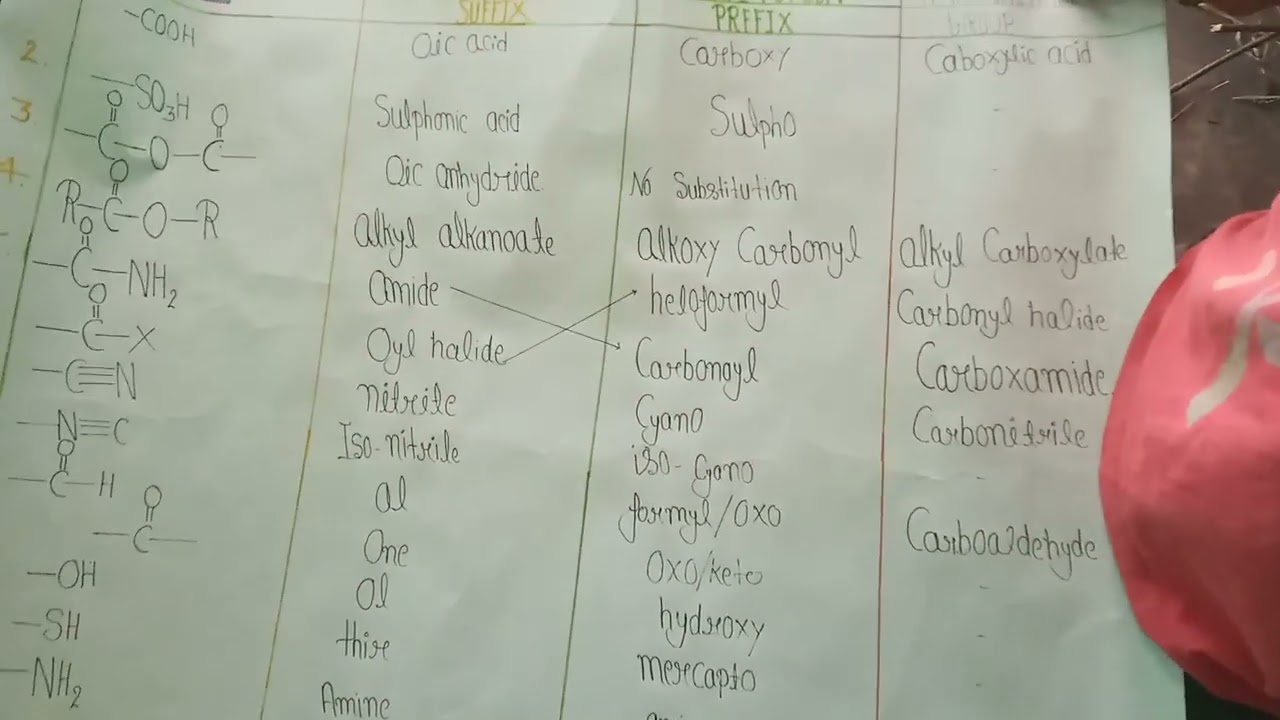 SUFFIX PREFIX
-COOH Oic acid Carboxy Caboxylic acid
2. -SO3H Sulphonic acid Sulpho -
3. O O
-C-O-C- Oic anhydride No Substitution
4. O
R-C-O-R Alkyl alkanoate alkoxy Carbonyl alkyl Carboxylate
O
-C-NH2 amide heloformyl Carbonyl halide
O
-C-X Oyl halide Carbomoyl Carboxamide
-C≡N nitrile Cyano Carbonitrile
-N≡C Iso-nitrile iso-Cyano -
O
-C-H al formyl/OXO Carboaldehyde
O
-C- One OXO/keto -
-OH Ol hydroxy -
-SH thire merecapto -
-NH2 Amine